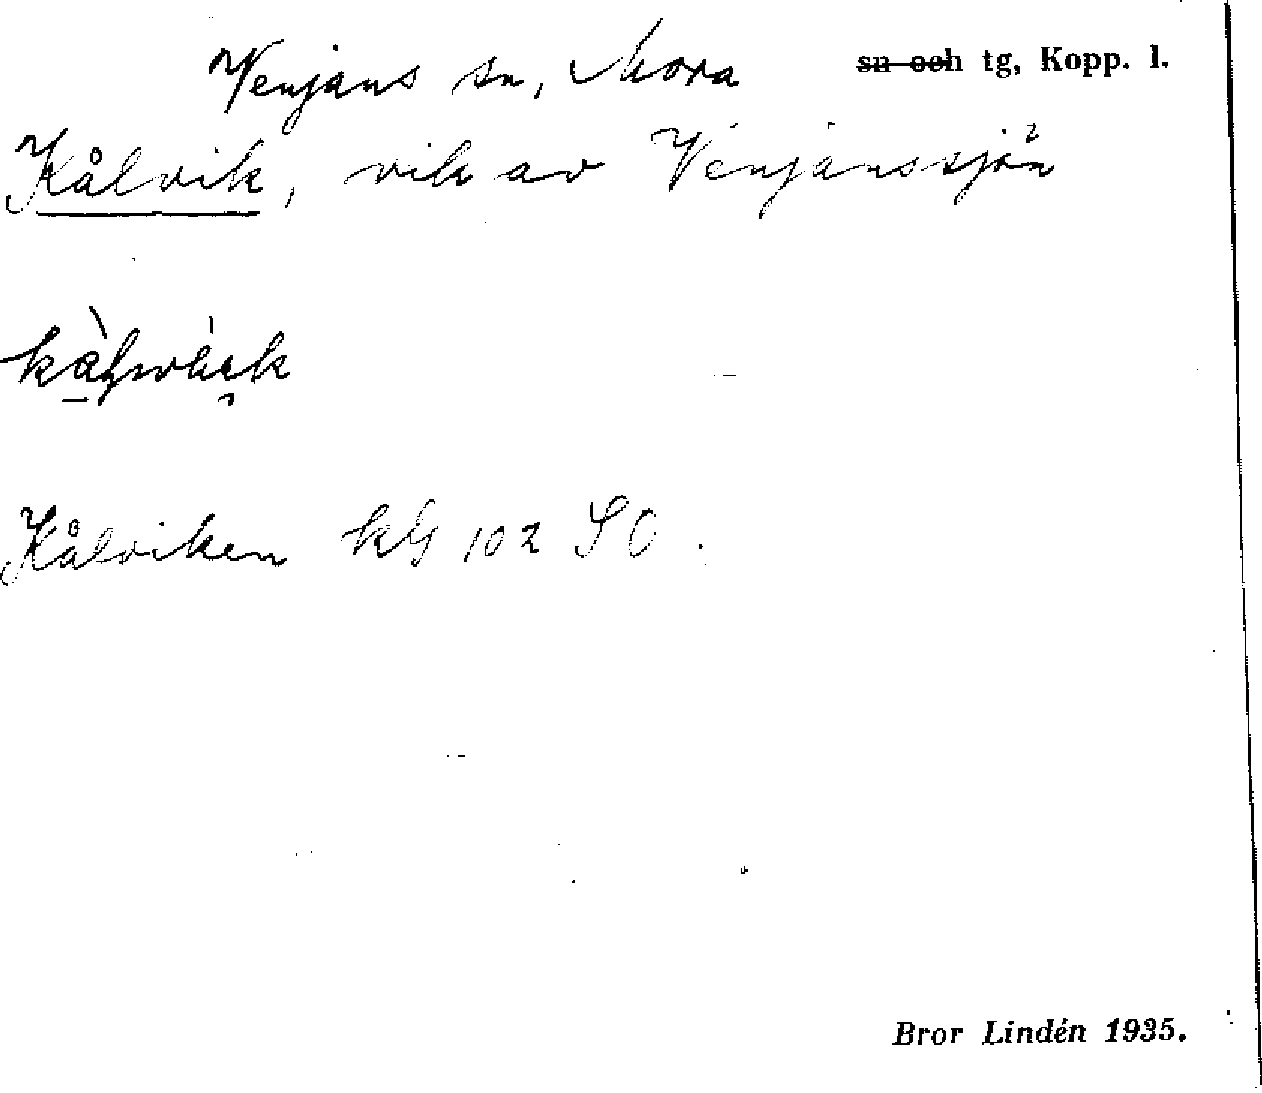 Venjans sn, Mora sn och tg, Kopp. l.
Kålvik, vik av Venjanssjön
Kålviken kG 102 SO.
Bror Lindén 1935.